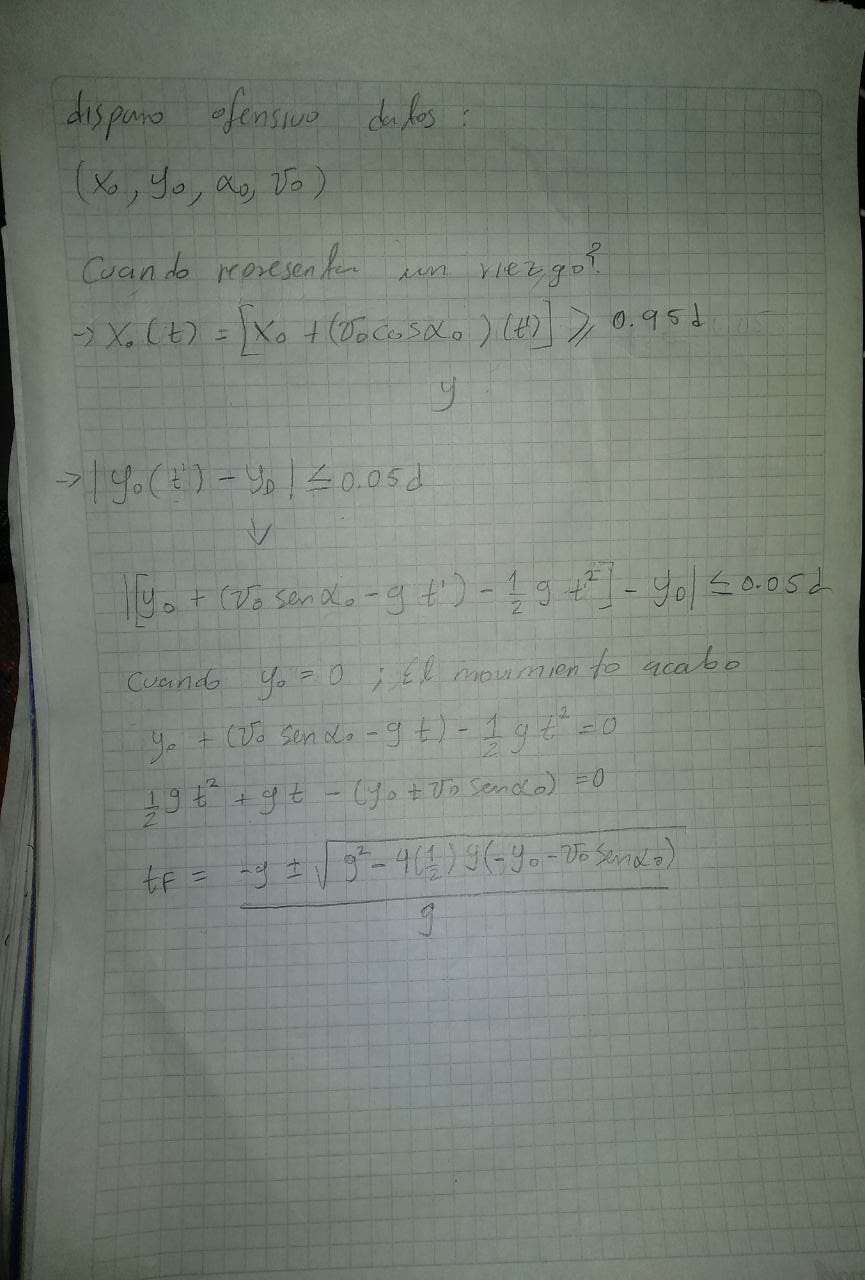 disparo ofensivo datos:
(x₀, y₀, α₀, v₀)
Cuando representa un riezgo?
→ X₀(t) = [X₀ + (v₀ cosα₀)(t')] ⩾ 0.95d
y
→ |y₀(t') - y_D| ≤ 0.05d
↓
|[y₀ + (v₀ senα₀ - g t') - ½ g t²] - y₀| ≤ 0.05d
Cuando y₀ = 0 ; El movimiento acabo
y₀ + (v₀ senα₀ - g t) - ½ g t² = 0
½ g t² + g t - (y₀ + v₀ senα₀) = 0
t_F = (-g ± √(g² - 4(½) g(-y₀ - v₀ senα₀))) / g